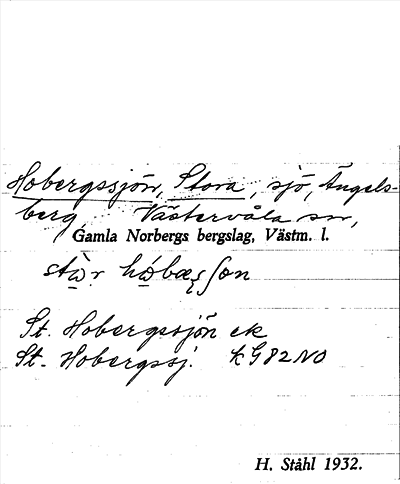 Hobergssjön, Stora, sjö, Ängels-
berg Västervåla sn,
Gamla Norbergs bergslag, Västm. l.
St. Hobergssjön ek
St. Hobergssj. kG82NO
H. Ståhl 1932.